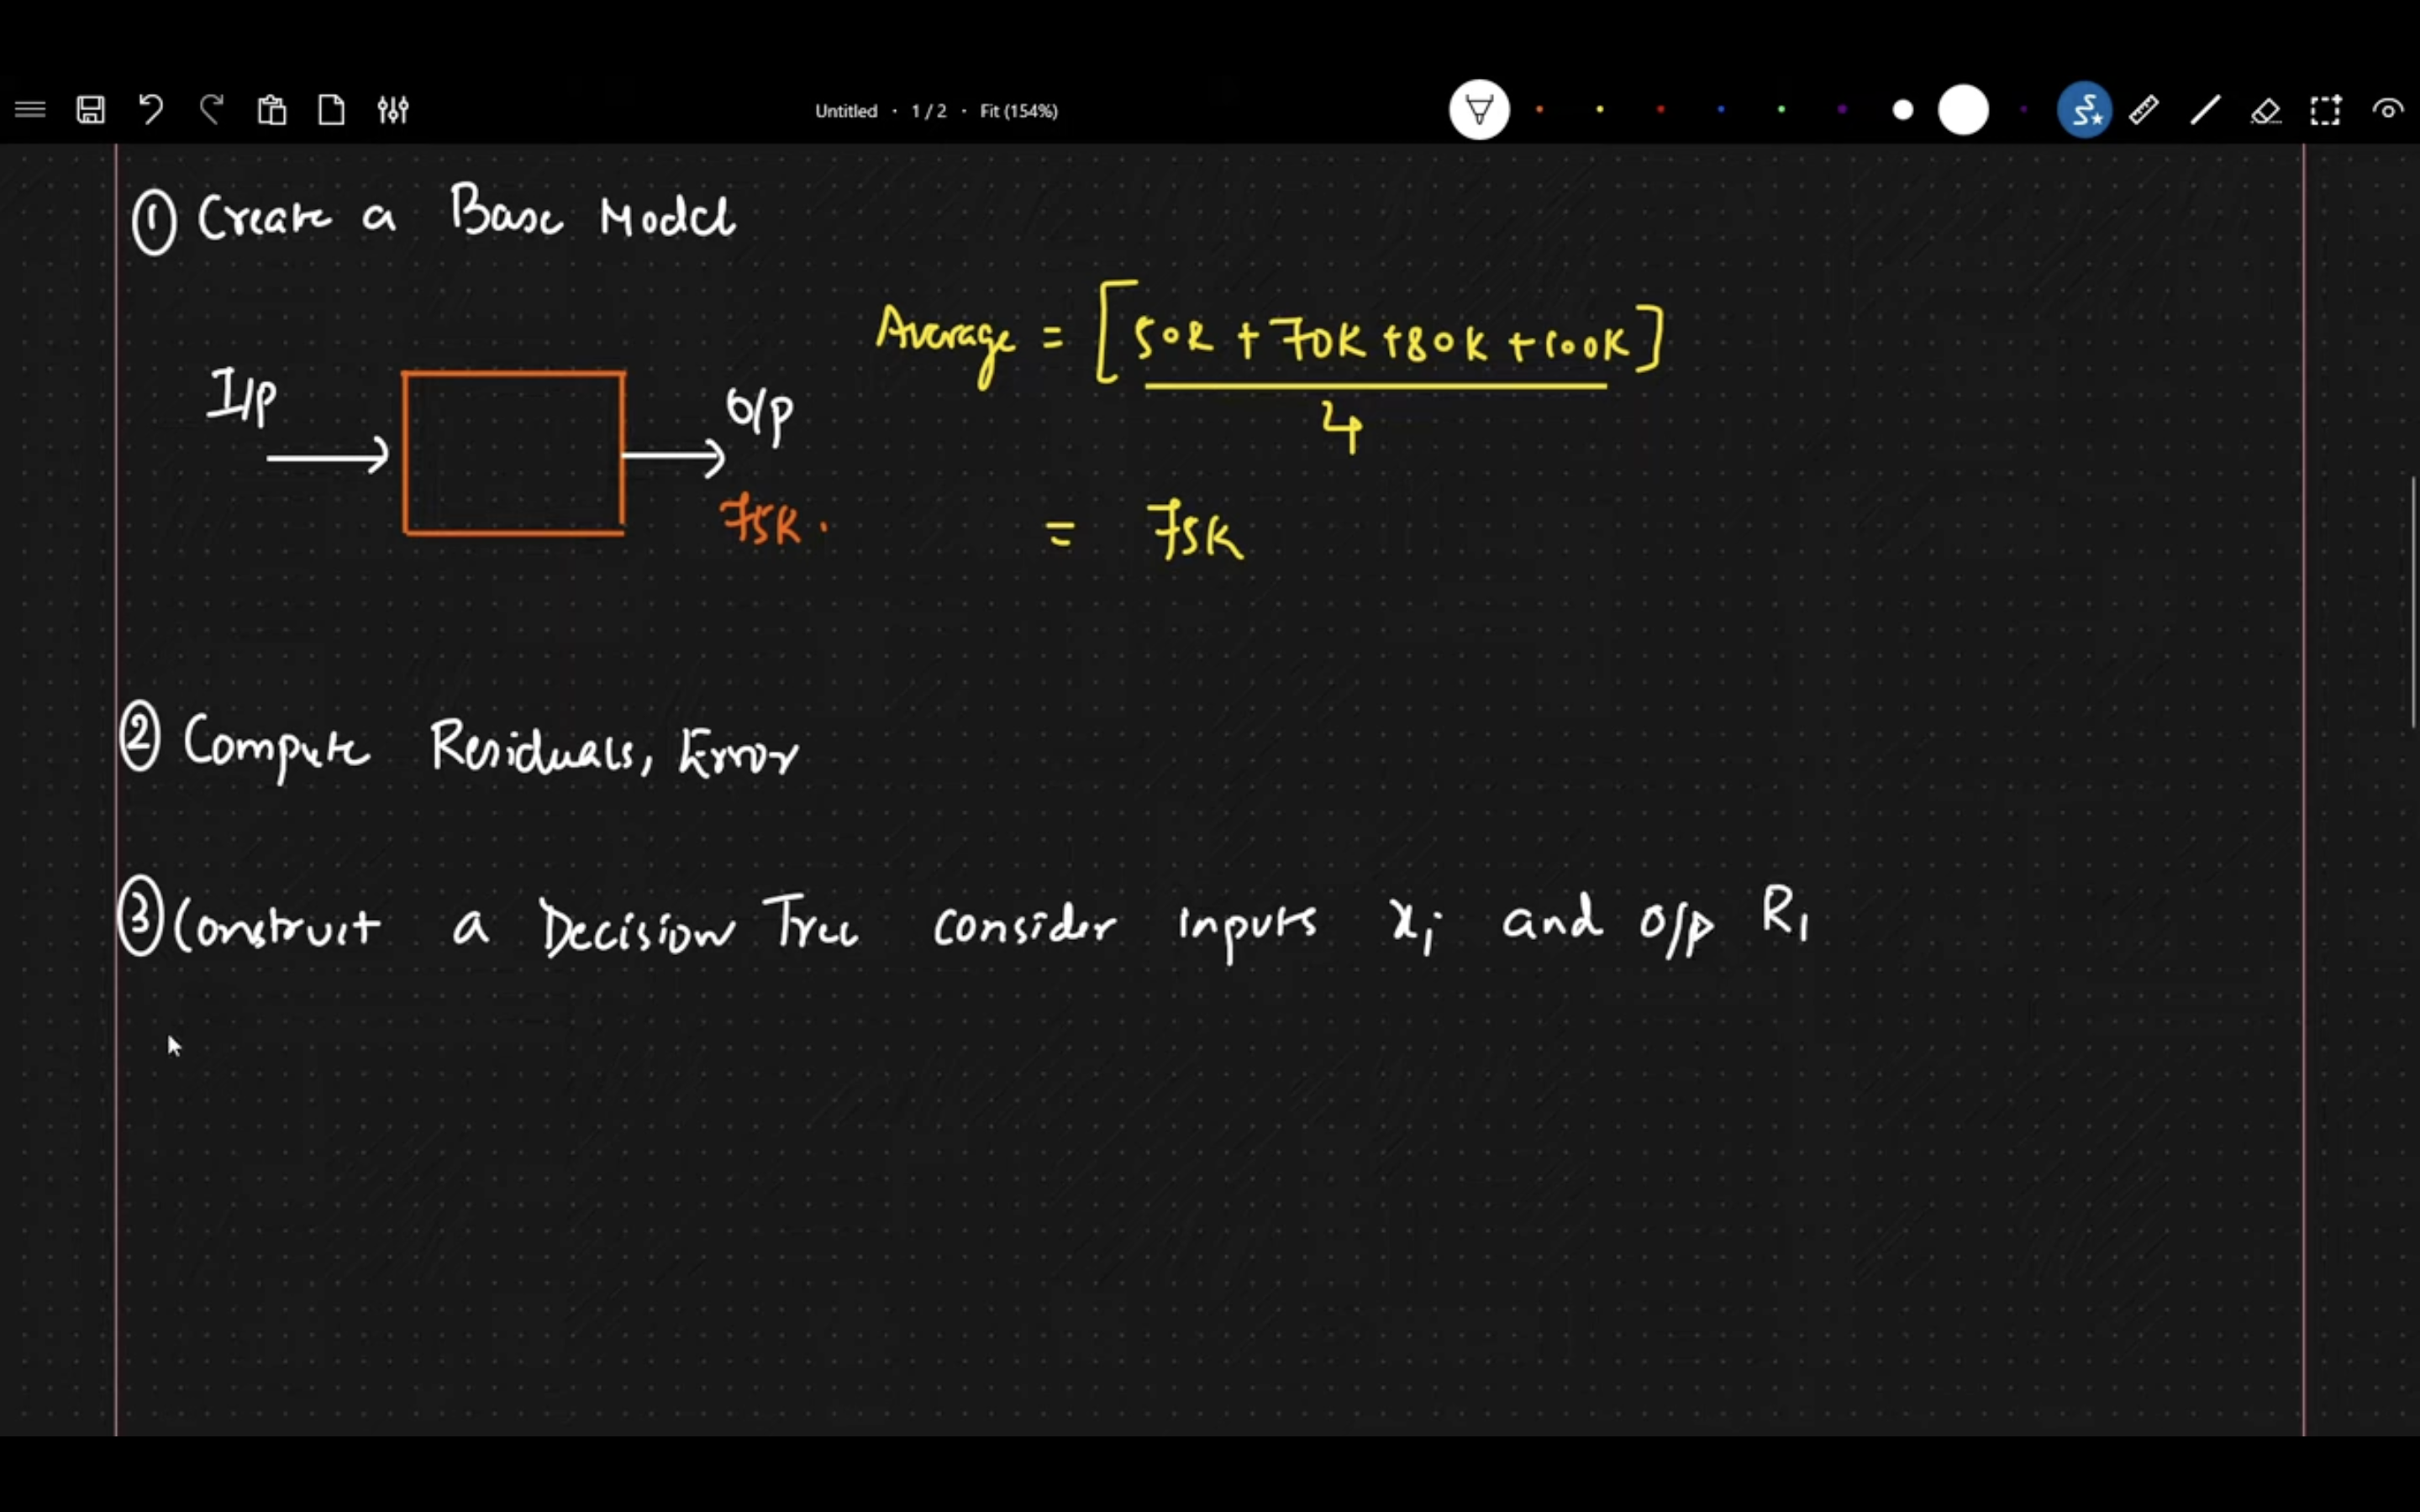 Untitled · 1 / 2 · Fit (154%)
① Create a Base Model
Average = [50K + 70K + 80K + 100K]
4
I/p
O/p
75K.
= 75K
② Compute Residuals, Error
③ Construct a Decision Tree consider inputs xi and o/p R1